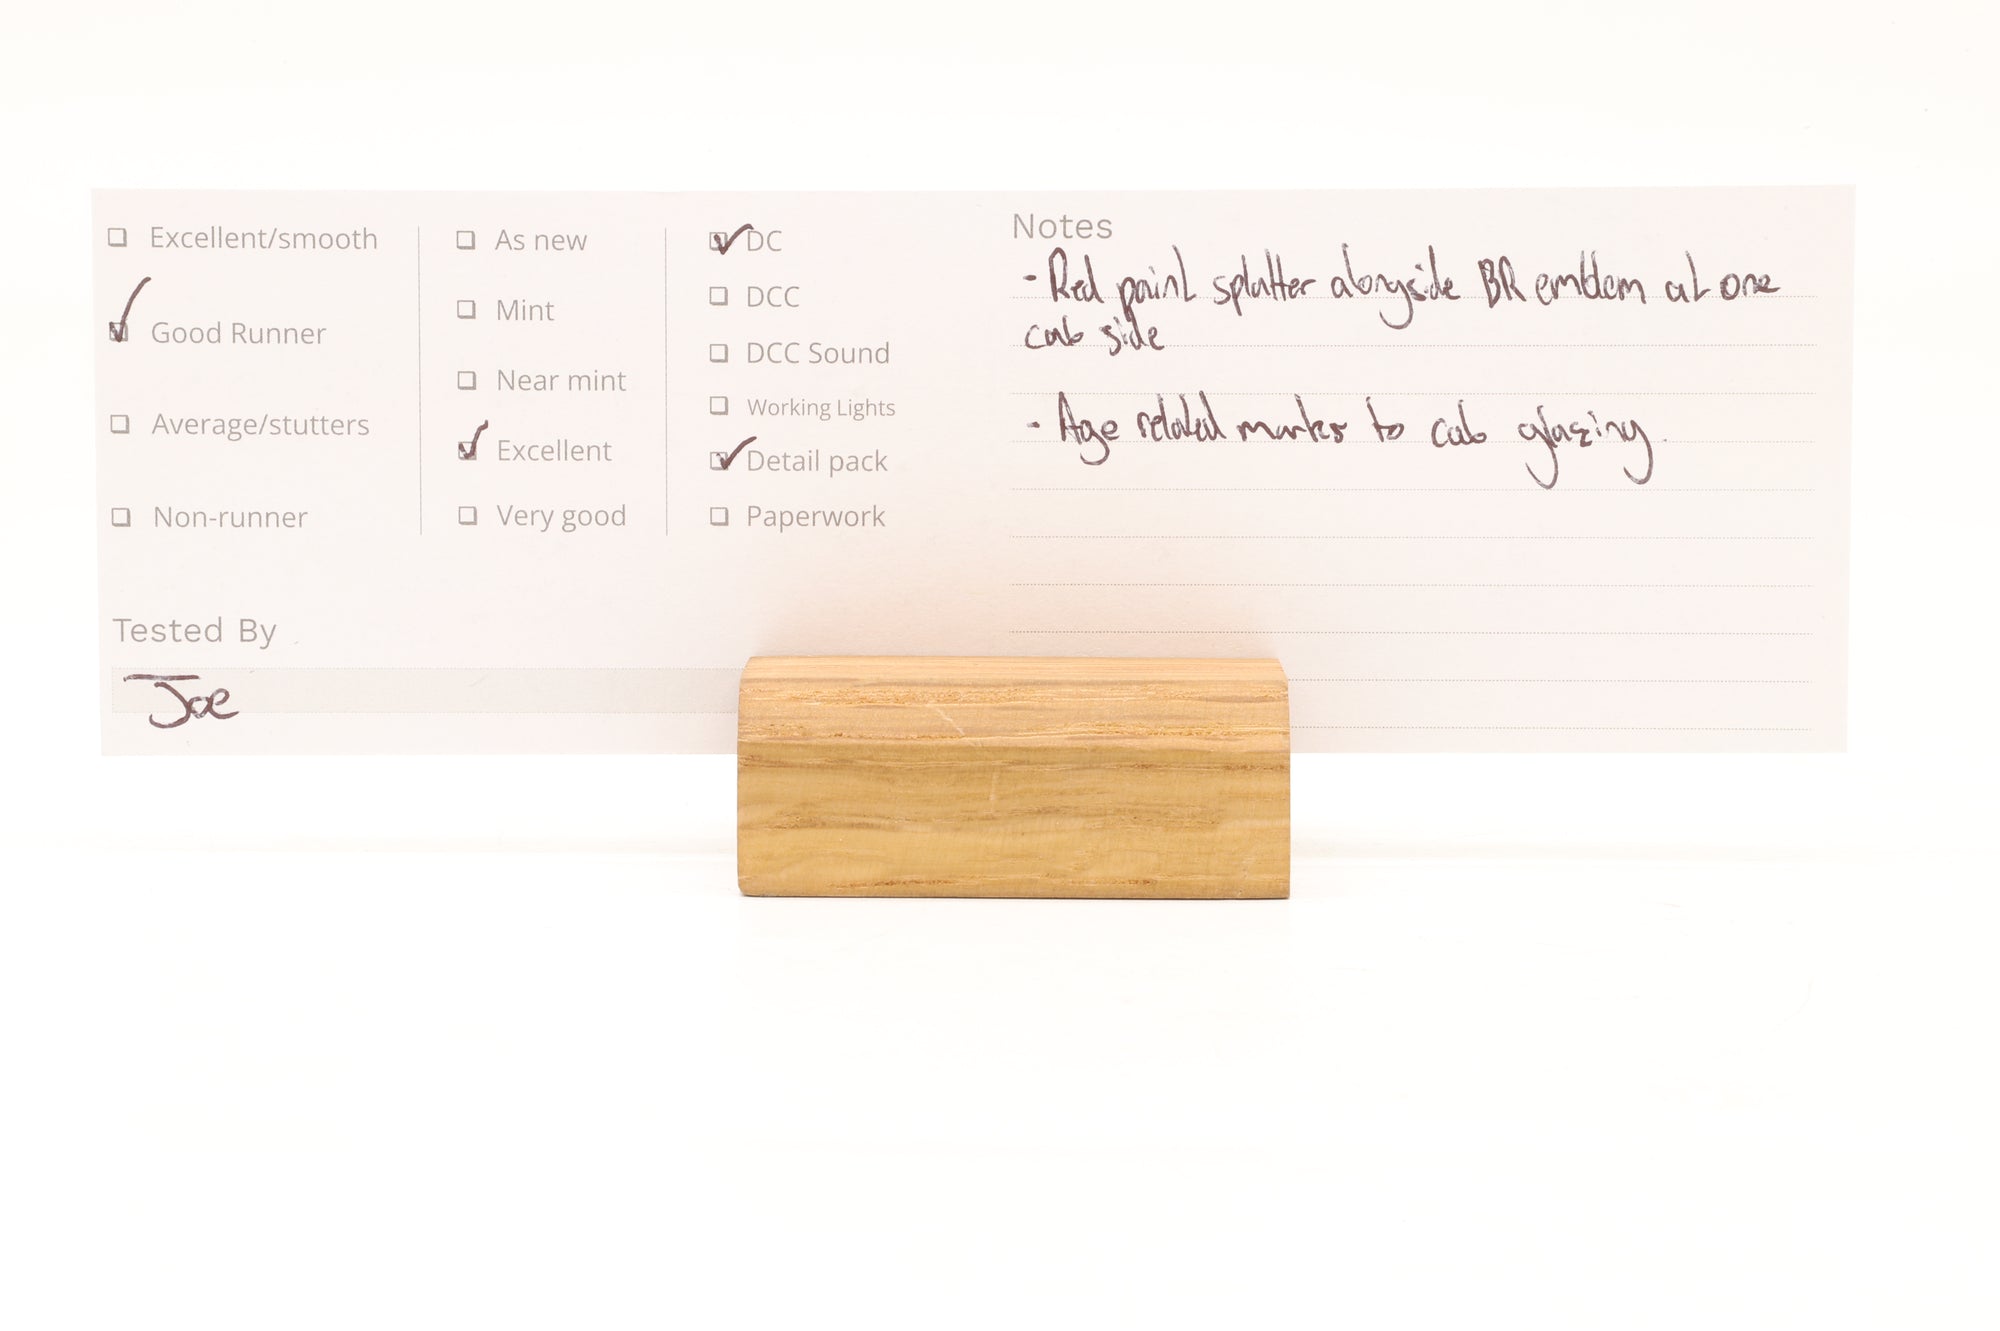 Excellent/smooth
Good Runner
Average/stutters
Non-runner
As new
Mint
Near mint
Excellent
Very good
DC
DCC
DCC Sound
Working Lights
Detail pack
Paperwork
Tested By
Joe
Notes
- Red paint splatter alongside BR emblem at one
cab side
- Age related marks to cab glazing.